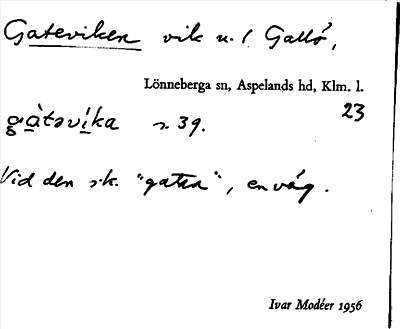 Gateviken vik u. l. Gallö,
Lönneberga sn, Aspelands hd, Klm. l.
23
gàtəvíka s. 39.
Vid den s.k. "gatan", en väg.
Ivar Modéer 1956